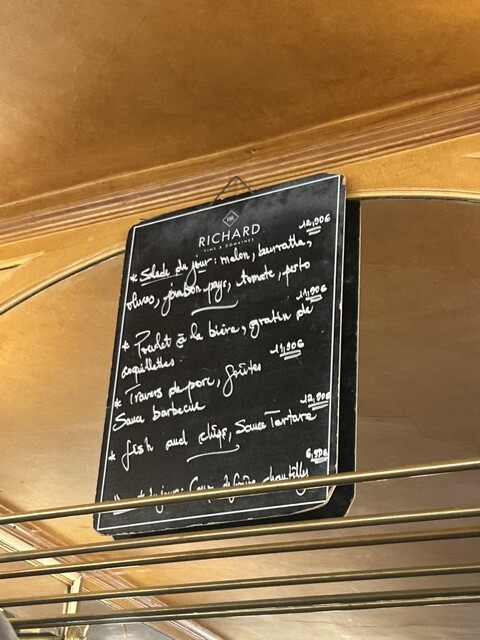 RICHARD
VINS & DOMAINES
12,90€
* Salade du jour : melon, burratta,
olives, jambon pays, tomate, pesto
11,90€
* Poulet à la bière, gratin de
coquillettes.
11,90€
* Travers de porc, frites
Sauce barbecue
12,90€
* fish and chips, Sauce Tartare
6,50€
chantilly